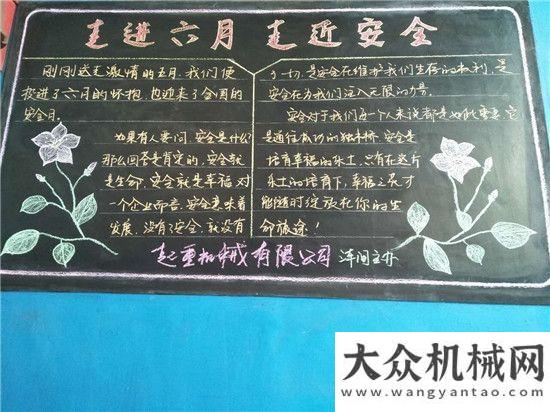 走进六月 走近安全
刚刚送走激情的五月，我们便
投进了六月的怀抱，也迎来了全国的
安全月。
如果有人要问，安全是什么？
那么回答是肯定的，安全就
是生命，安全就是幸福，对
一个企业而言，安全意味着
发展，没有了安全，就没有
了一切，是安全在维护我们生存的权利，是
安全在为我们注入无限的力量。
安全对于我们每一个人来说都是如此重要，它
是通往成功的独木桥，安全是
培育幸福的乐土，只有在这片
乐土的培育下，幸福之花才
能随时绽放在你的生
命旅途！
起重机械有限公司 车间主办
大众机械网
www.wangyantao.com